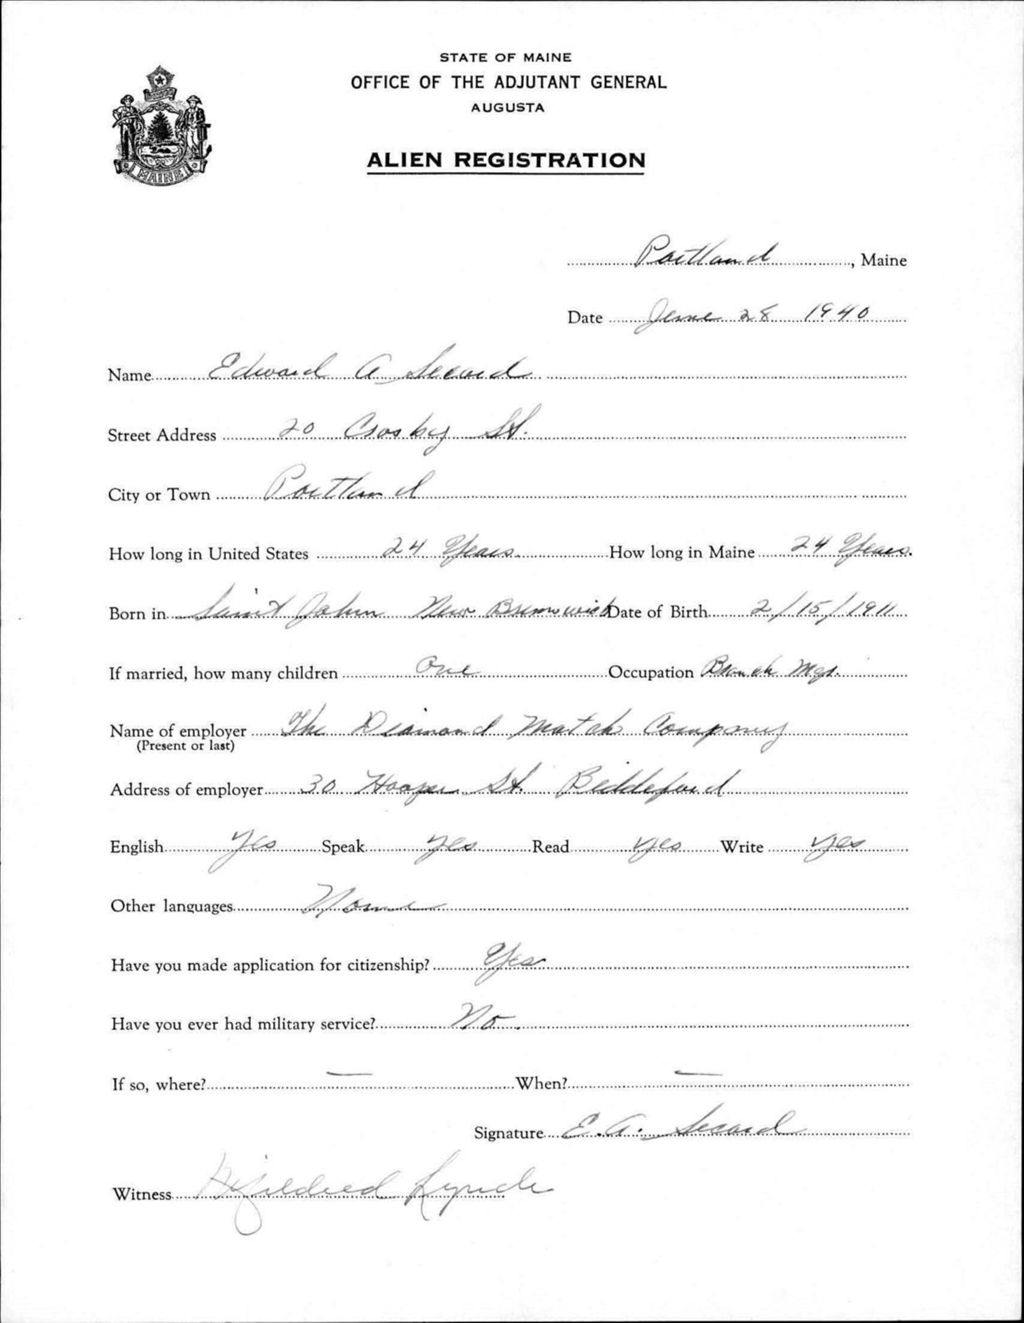 STATE OF MAINE
OFFICE OF THE ADJUTANT GENERAL
AUGUSTA
ALIEN REGISTRATION
MAINE
Portland, Maine
Date June 28 1940
Name Edward A Secord
Street Address 20 Crosby St.
City or Town Portland
How long in United States 24 Years How long in Maine 24 Years.
Born in Saint John New Brunswick Date of Birth 2/15/1911
If married, how many children One Occupation Branch Mgr.
Name of employer The Diamond Match Company
(Present or last)
Address of employer 30 Hooper St. Biddeford
English Yes Speak yes Read yes Write yes
Other languages None
Have you made application for citizenship? Yes
Have you ever had military service? No.
If so, where? — When? —
Signature E. A. Secord
Witness Mildred Lynch